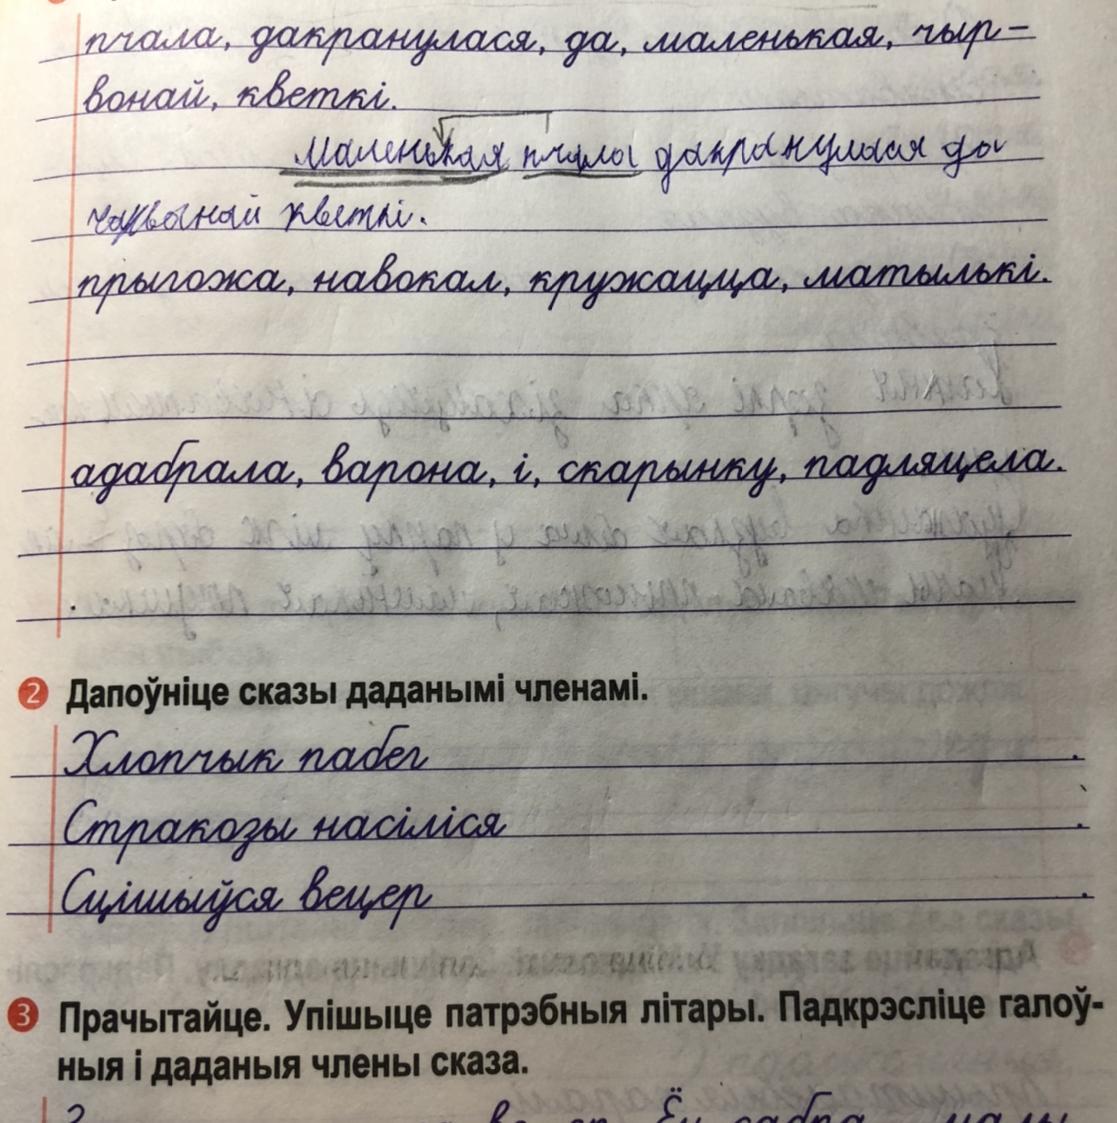 пчала, дакранулася, да, маленькая, чыр-
вонай, кветкі.
Маленькая пчала дакранулася да
чырвонай кветкі.
прыгожа, навокал, кружацца, матылькі.
адабрала, варона, і, скарынку, падляцела.
2 Дапоўніце сказы даданымі членамі.
Хлопчык пабег .
Стракозы насіліся .
Сцішыўся вецер .
3 Прачытайце. Упішыце патрэбныя літары. Падкрэсліце галоў-
ныя і даданыя члены сказа.